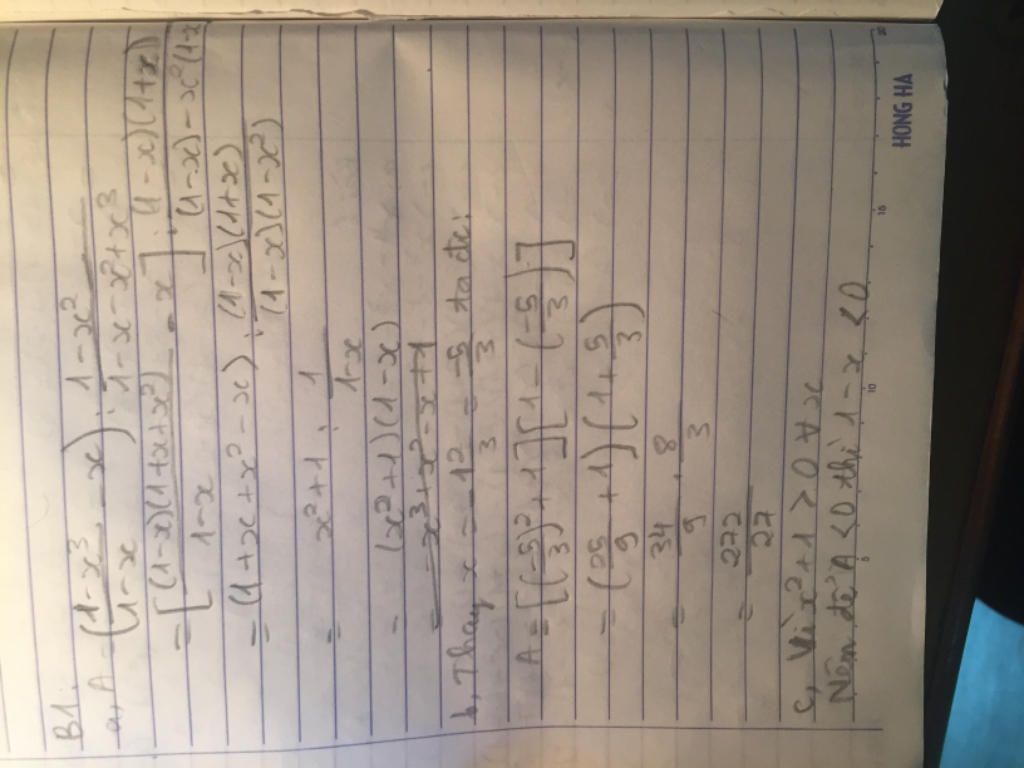 B1.
a, A = (1-x³/1-x - x) : 1-x²/1-x-x²+x³
= [(1-x)(1+x+x²)/1-x - x] : (1-x)(1+x)/(1-x)-x²(1-x
= (1+x+x²-x) : (1-x)(1+x)/(1-x)(1-x²)
= x²+1 : 1/1-x
= (x²+1)(1-x)
= -x³+x²-x+1
b, Thay x = -1 2/3 = -5/3 ta đc:
A = [(-5/3)²+1][1-(-5/3)]
= (25/9+1)(1+5/3)
= 34/9 . 8/3
= 272/27
c, Vì x²+1 > 0 ∀ x
Nên để A < 0 thì 1-x < 0
HONG HA
5 10 15 20